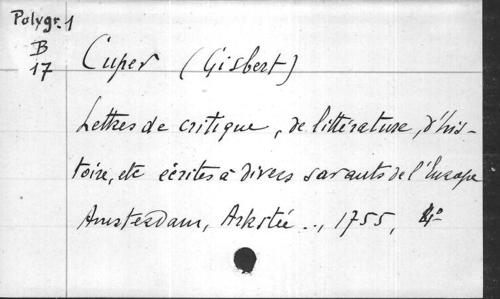 Polygr. 1
B
17
Cuper (Gisbert)
Lettres de critique, de littérature, d'his-
toire, etc écrites à divers savants de l'Europe
Amsterdam, Arkstée .., 1755, 4°